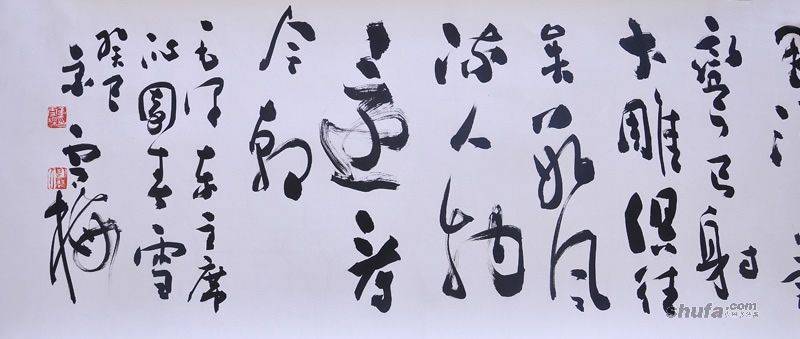 彎弓射
大雕俱往
矣数风
流人物
還看
今朝
毛泽东主席
沁園春雪
癸巳
雪梅
shufa.com